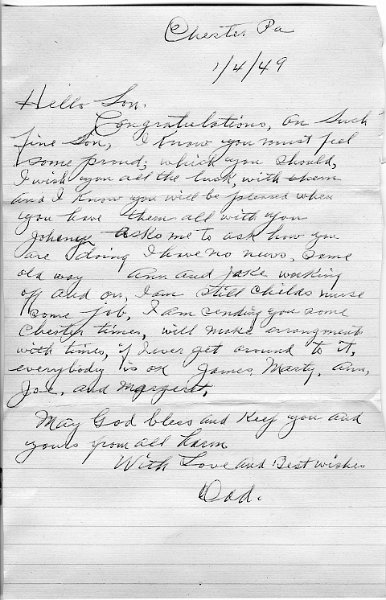 Chester Pa
1/4/49
Hello Son.
Congratulations, on such
fine son, I know you must feel
some proud; which you should,
I wish you all the luck, with them
and I know you will be pleased when
you have them all with you
Asks me to ask how you
are doing I have no news, some
old way Ann and Jake working
off and on, I am still childs nurse
some job, I am sending you some
Chester times, will make arrangments
with times, if I ever get around to it,
everybody is ok James, Marty, Ann,
Joe, and Margaret,
May God bless and keep you and
yours from all harm
With Love and Best wishes
Dad.